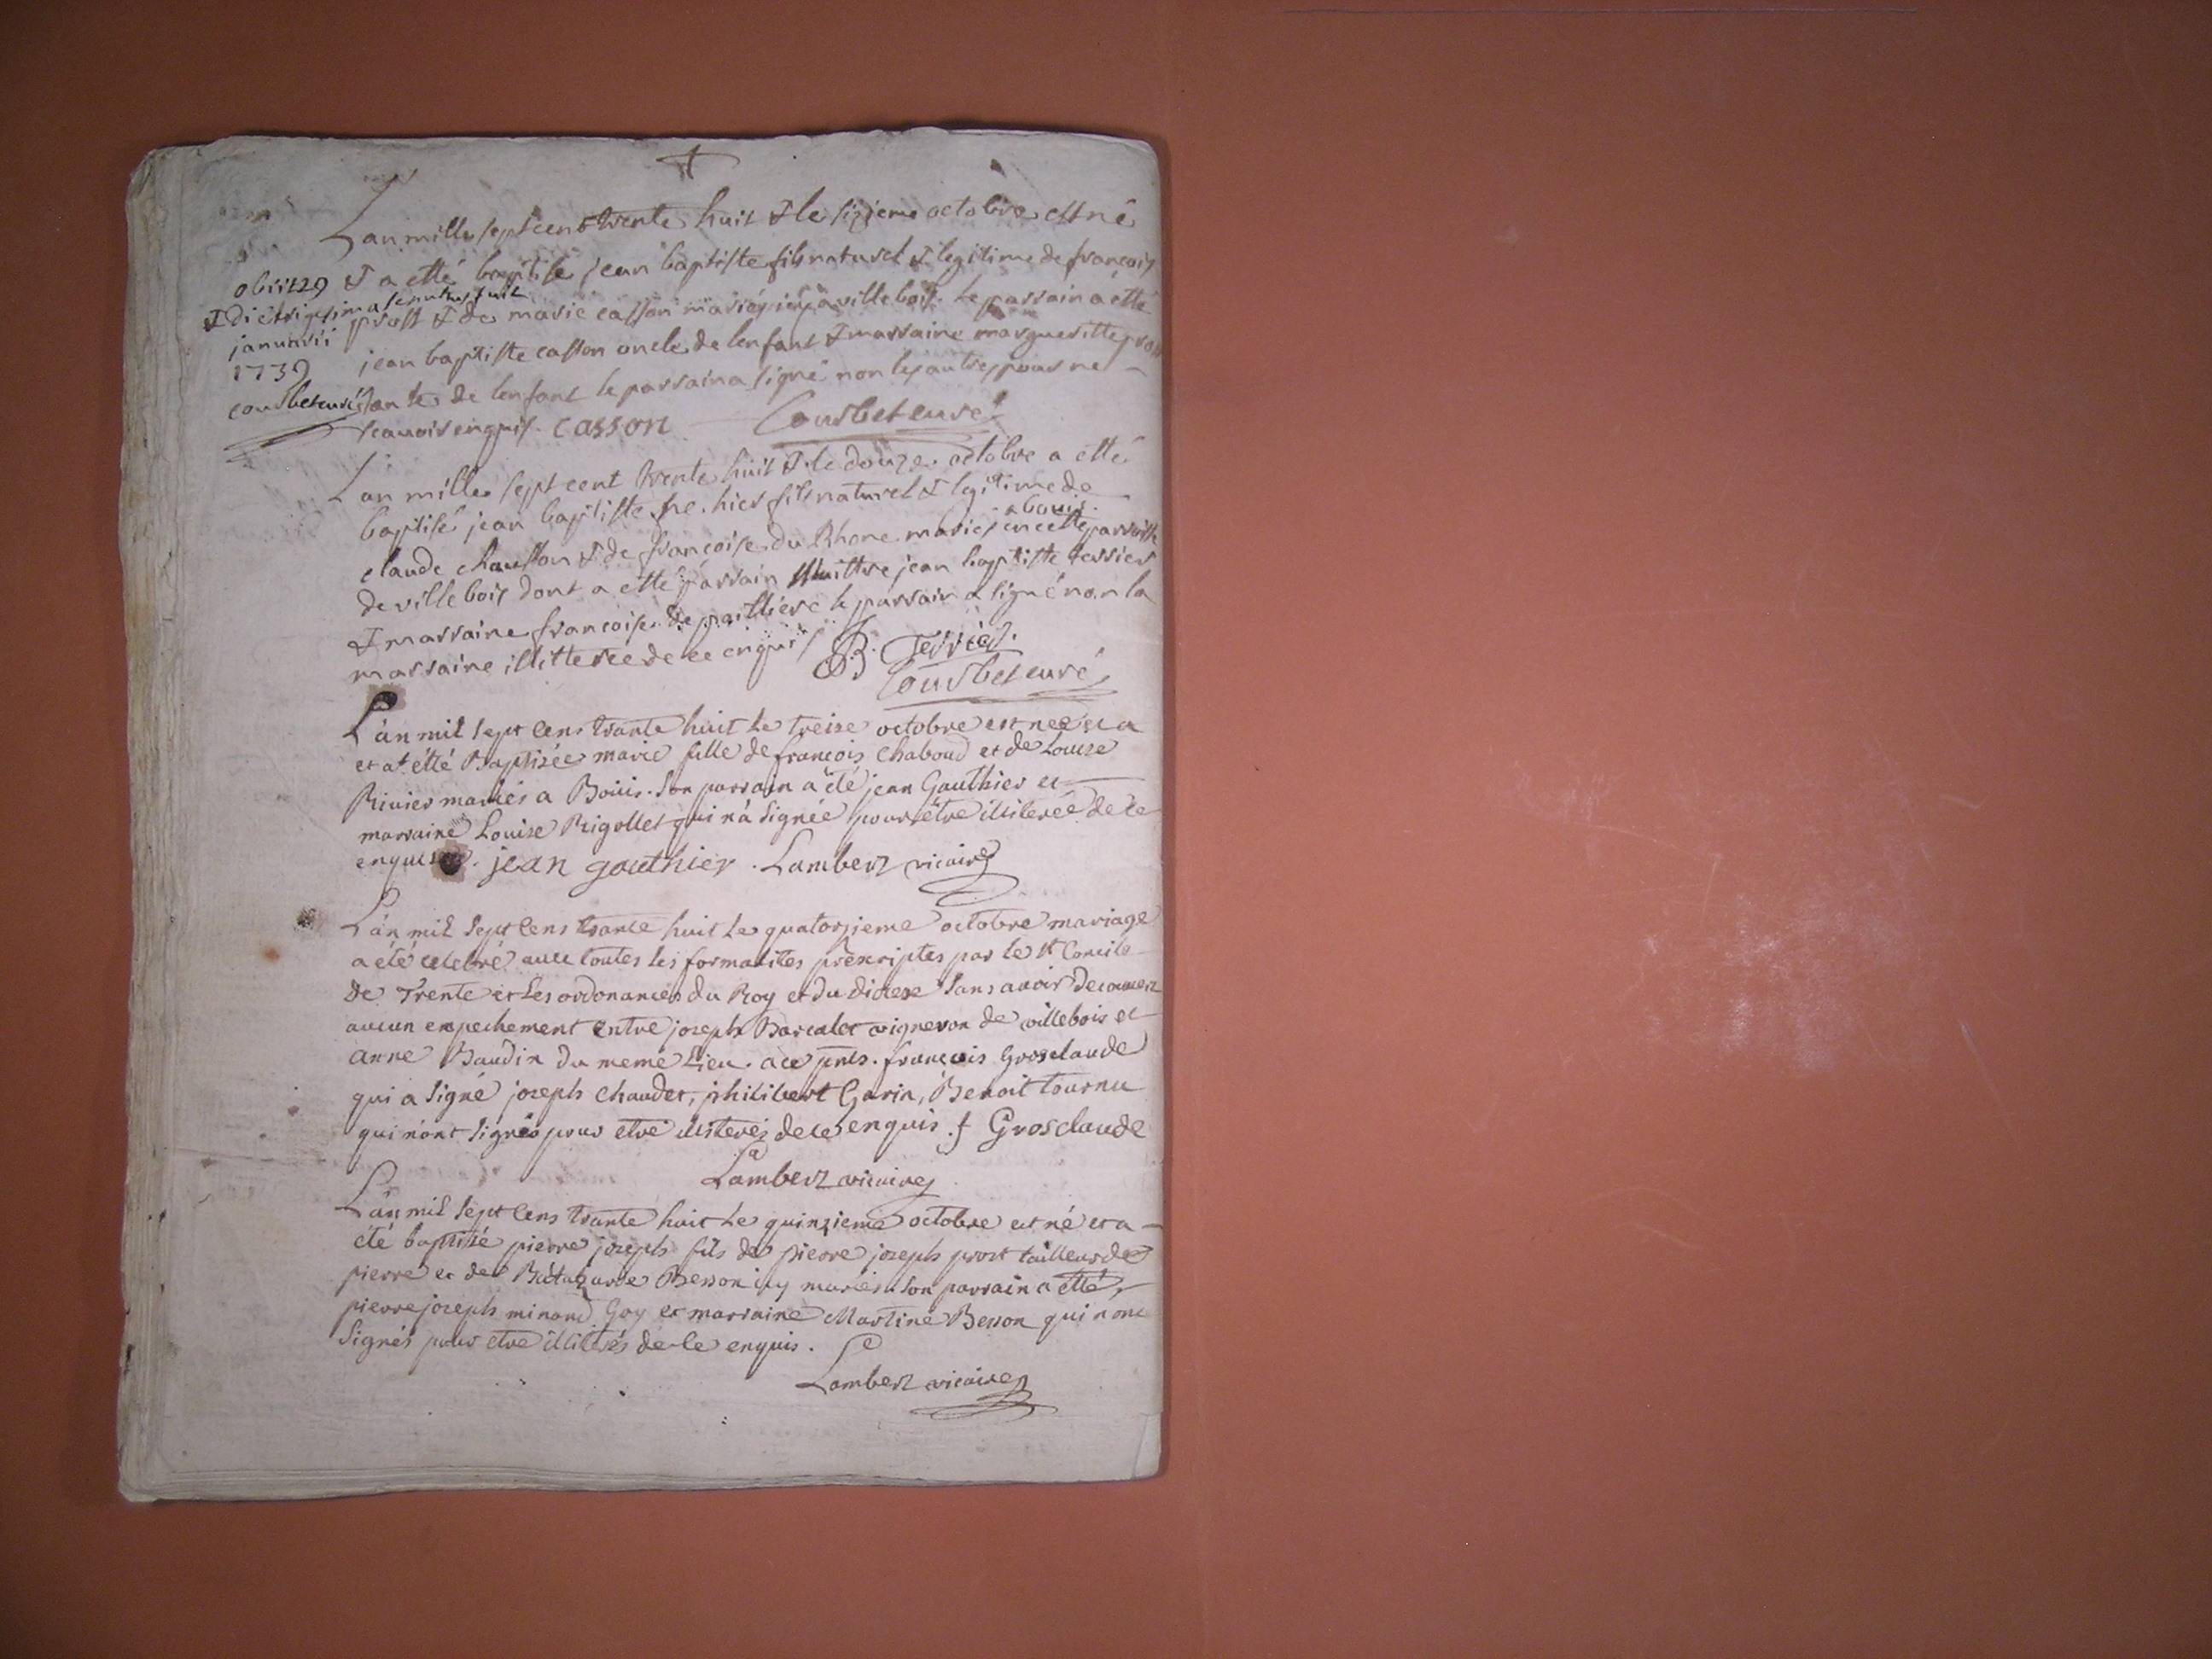 Lan mille sept cent trente huit & le sizieme octobre est né
& a etté baptisé jean baptiste fils naturel & legitime de françois
prost & de marie casson mariés icy a villebois. le parrain a etté
jean baptiste casson oncle de lenfant & marraine margueritte prost
tante de lenfant le parrain a signé non les autres pour ne
scauoir enquis. casson Courbet curé
obiit 29
& die trigesima sepultus fuit
januarii
1739
courbet curé
Lan mille sept cent trente huit & le douze octobre a etté
baptisé jean baptiste né hier fils naturel & legitime de
claude chausson & de françoise du Rhone mariés en cette parroisse
a bouis.
de villebois dont a etté parrain Maittre jean baptiste tessier
& marraine françoise de la parrain a signé non la
marraine illitterée de ce enquis JB. Tessier.
Courbet curé
L'án mil sept cens trante huit le treize octobre est née et a
et at été Baptizée marie fille de françois Chaboud et de Louize
Rivier mariés a Boüis. Son parrain a été jean Gauthier et
marraine Louize Rigollet qui n'a signée pour être illiterée de ce
enquise. jean gauthier. Lambert vicaire
L'án mil sept cens trante huit le quatorzieme octobre mariage
a été celebré avec toutes les formalites prèscriptes par le st Concile
de Trente et les ordonances du Roy et du dioceze sans avoir decouvert
aucun enpechement entre joseph Barcalet vigneron de villebois et
anne Baudin du meme Lieu. a ce pnts. françois Grosclaude
qui a signé joseph chaudet, philibert Garin, Benoit tournu
qui n'ont signés pour etre illiterés de ce enquis. f Grosclaude
Lambert vicaire
L'án mil sept cens trante huit le quinzieme octobre est né et a
été baptizé pierre joseph fils de pierre joseph prost tailleur de
pierre et de Besson icy mariés. son parrain a etté
pierre joseph minand Goy et marraine Martine Besson qui n'ont
signés pour etre illiterés de ce enquis.
Lambert vicaire